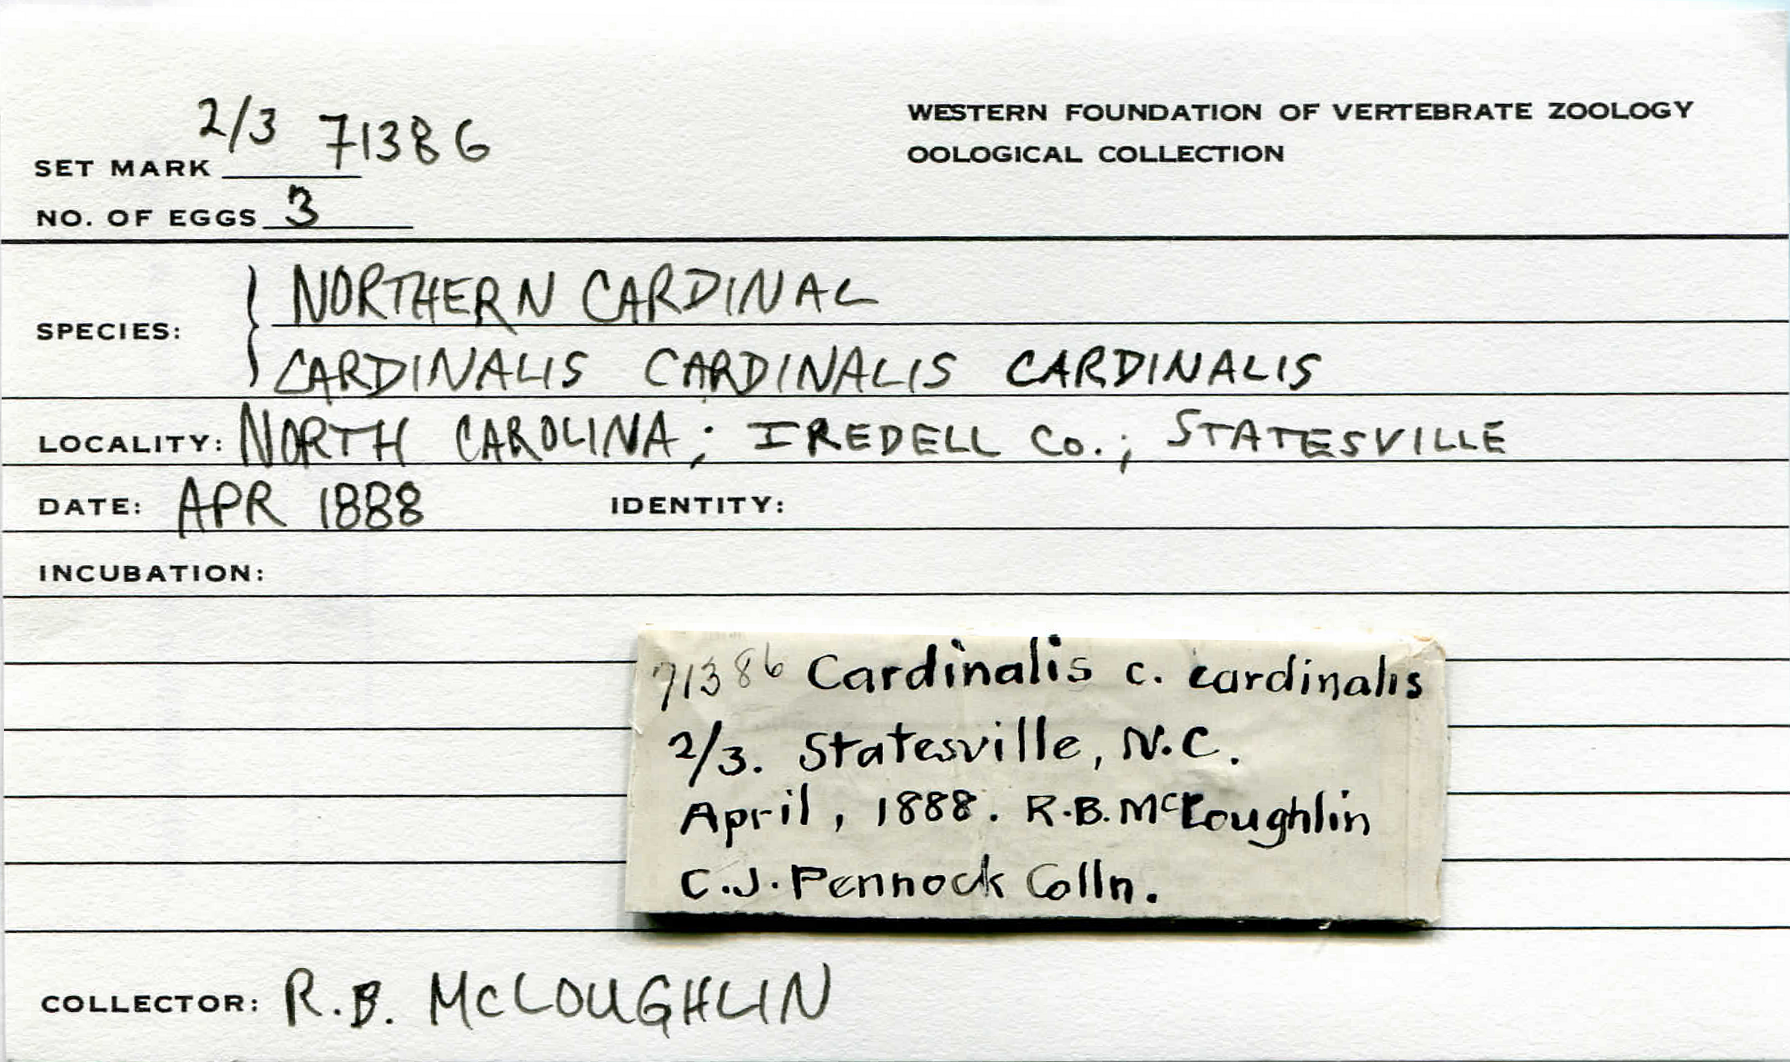 2/3 71386
WESTERN FOUNDATION OF VERTEBRATE ZOOLOGY
SET MARK
OOLOGICAL COLLECTION
NO. OF EGGS 3
NORTHERN CARDINAL
SPECIES:
CARDINALIS CARDINALIS CARDINALIS
LOCALITY: NORTH CAROLINA; IREDELL Co.; STATESVILLE
DATE: APR 1888 IDENTITY:
INCUBATION:
71386 Cardinalis c. cardinalis
2/3. Statesville, N.C.
April, 1888. R.B. McLoughlin
C.J. Pennock Colln.
COLLECTOR: R.B. McLOUGHLIN